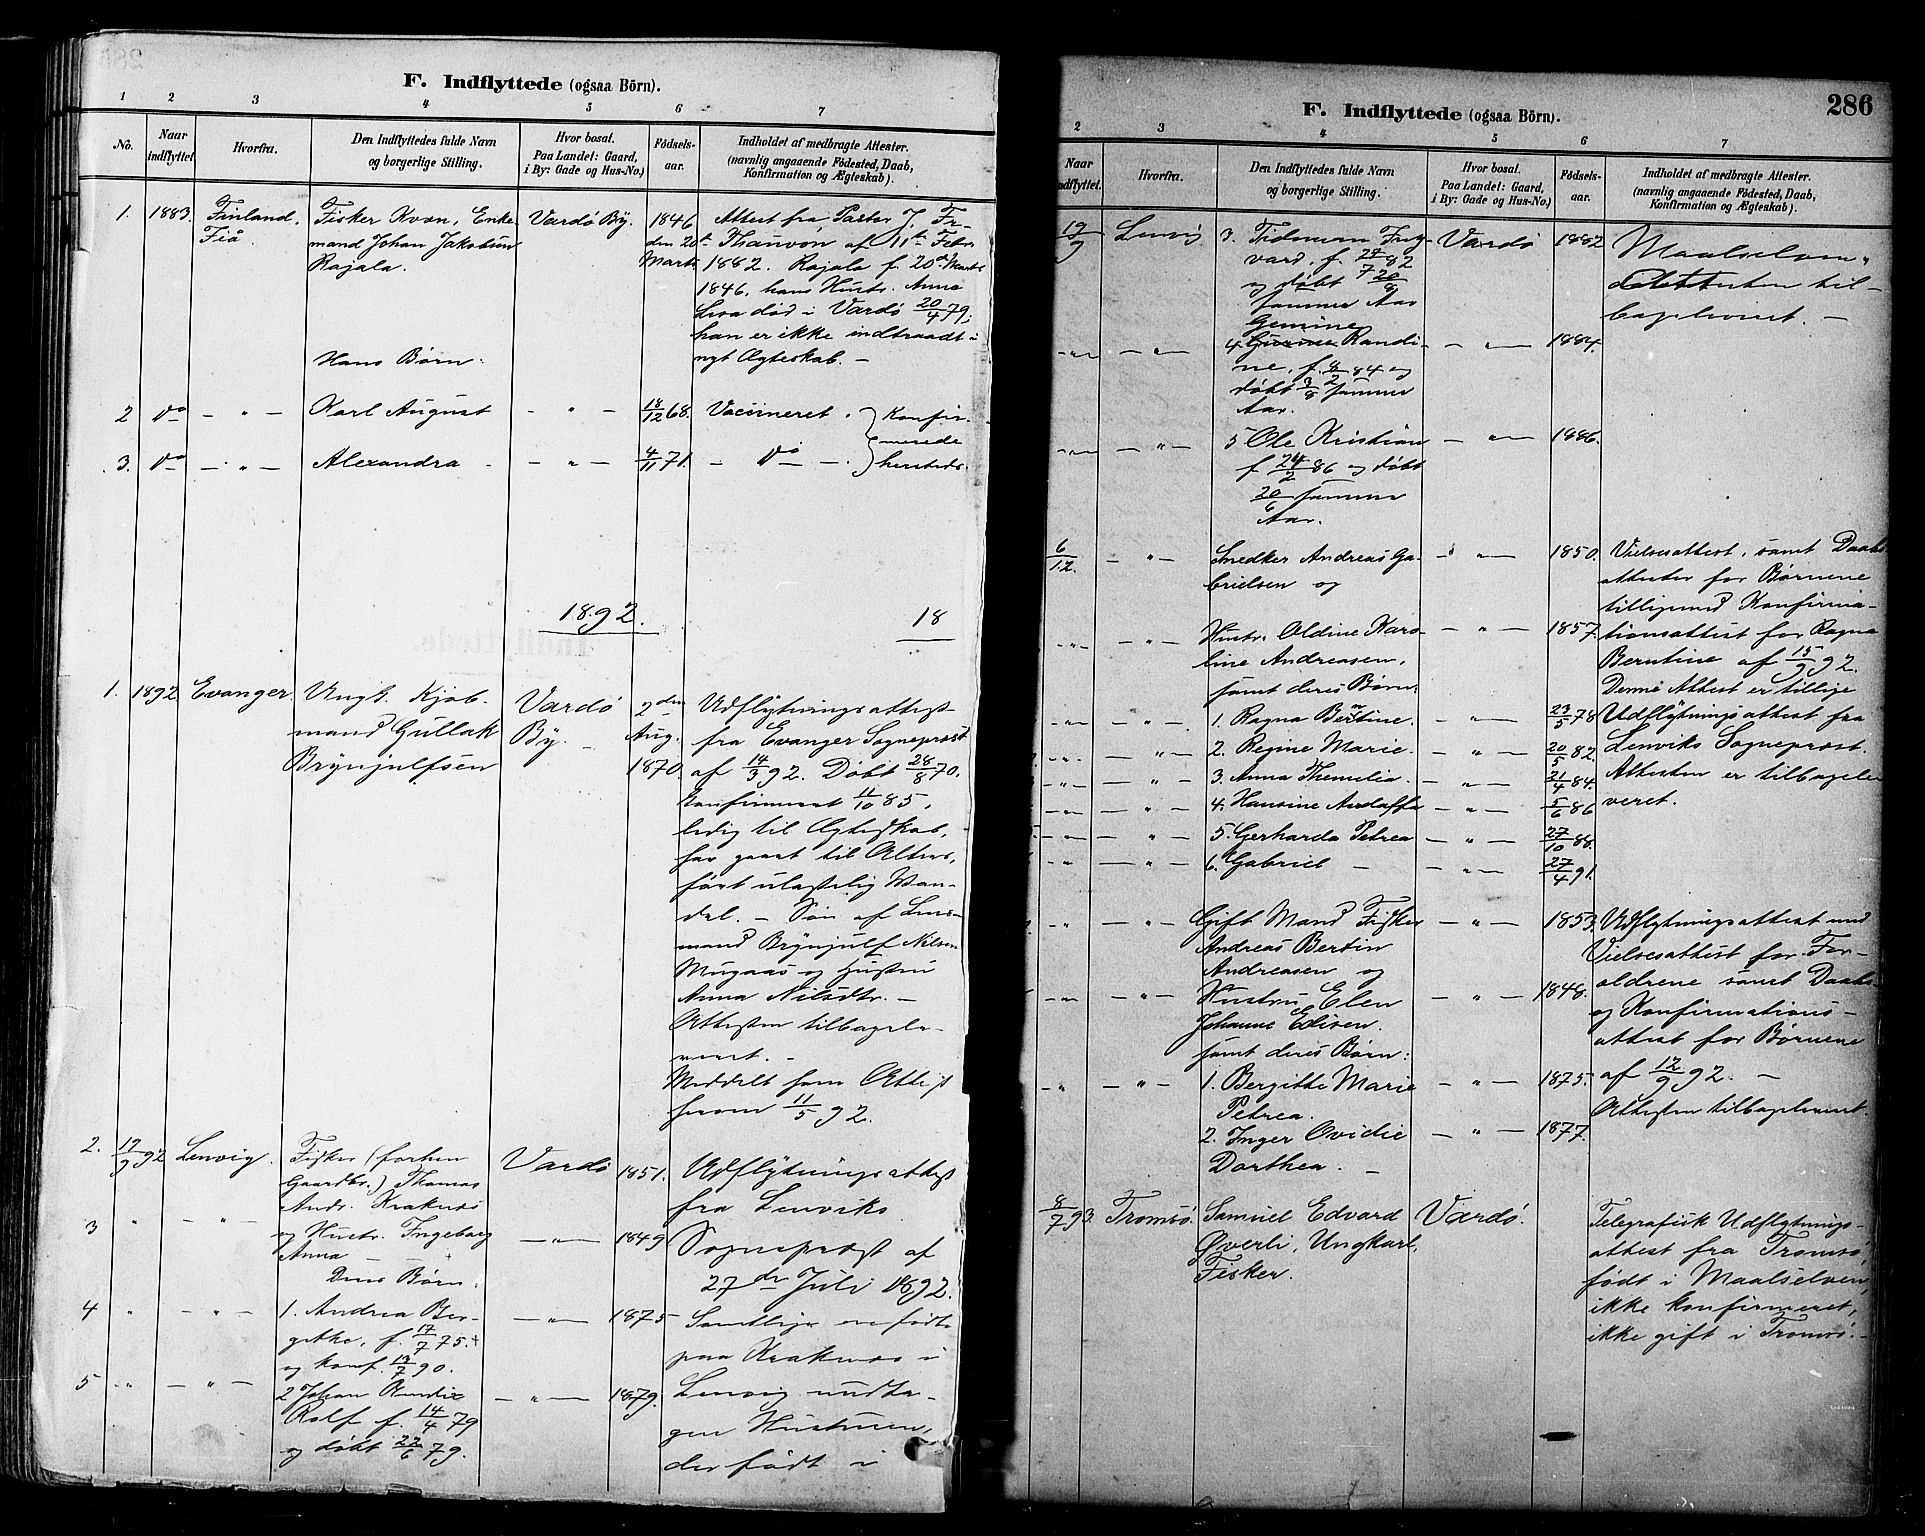 F. Indflyttede (ogsaa Börn).
1 2 3 4 5 6 7
No.
Naar indflyttet
Hvorfra.
Den Indflyttedes fulde Navn
og borgerlige Stilling.
Hvor bosat.
Paa Landet: Gaard,
i By: Gade og Hus-No.)
Fødsels-
aar.
Indholdet af medbragte Attester.
(navnlig angaaende Födested, Daab,
Konfirmation og Ægteskab).
1. 1883. Finland,
Fiå.
Fisker Kvæn, Enke
mand Johan Jakobsen
Rajala.
Vardö By.
1846
den 20de
Marts
Attest fra Pastor J. Fr.
Thauvon af 11te Febr
1882. Rajala f. 20de Marts
1846, hans Hustr. Anna
Lisa død i Vardö 20/4 79;
han er ikke indtraadt i
nyt Ægteskab. —
Hans Børn:
2 do — " — Karl August — " — 18/12 68. Vaccineret.
3. do — " — Alexandra — " — 4/11 71. — do —.
Konfir-
merede
hersteds.
1892. 18
1. 1892 Evanger.
Ungk. Kjöb-
mand Gullak
Brynjulfsen
Vardö
By. —
2den
Aug.
1870
Udflytningsattest
fra Evanger Sogneprest
af 14/3 92. Döbt 28/8 70.
Konfirmeret 11/10 85,
ledig til Ægteskab,
har gaaet til Alters,
ført ulastelig Van-
del. — Sön af Lens-
mand Brynjulf Nilsen
Mugaas og Hustru
Anna Nilsdtr. —
Attesten tilbagele-
veret. —
Meddelt ham Attest
herom 11/5 92.
2. 17/9 92 Lenvig.
Fisker (forhen
Gaardbr.) Thomas
Andr. Kraknæs
Vardö 1851.
3 " — " — og Hustr. Ingeborg
Anna —
— " — 1849
Udflytningsattest
fra Lenviks
Sogneprest af
27de Juli 1892.
Deres Børn:
4 " — " — 1. Andrea Ber-
gitke, f. 17/7 75.
og konf 13/7 90.
— " — 1875
5 " — " — 2 Johan
Rolf f. 14/4 79
og döbt 22/6 79.
— " — 1879.
Samtlige ere födte
paa Kraknæs i
Lenvig undta-
gen Hustruen,
der født i
286
F. Indflyttede (ogsaa Börn).
2 3 4 5 6 7
Naar
indflyttet.
Hvorfra.
Den Indflyttedes fulde Navn
og borgerlige Stilling.
Hvor bosat.
Paa Landet: Gaard,
i By: Gade og Hus-No.)
Födsels-
aar.
Indholdet af medbragte Attester.
(navnlig angaaende Födested, Daab,
Konfirmation og Ægteskab).
17/9 Lenvig
3. Tideman Ing-
vard, f. 24/7 82
og döbt 20/8
samme Aar
Vardö 1882
Maalselven.
Attesten til-
bageleveret. —
Gemine
— " — — " — 4 Randi-
ne, f. 8/2 84 og
döbt 3/8 samme
Aar.
— " — 1884.
— " — — " — 5 Ole Kristian
f 24/2 86 og döbt
20/6 samme
Aar.
— " — 1886.
6/12. — " — Snedker Andreas Ga-
brielsen og
— " — 1850.
Vielsesattest, samt Daabs
attester for Børnene
tilligemed Konfirma-
tionsattest for Ragna
Berntine af 15/9 92.
Denne Attest er tillige
Udflytningsattest fra
Lenviks Sogneprest.
Attesten er tilbagele
veret.
— " — — " — Hustr. Oldine Karo-
line Andreasen,
samt deres Børn:
— " — 1857.
— " — — " — 1. Ragna Berntine. — " — 23/5 78
— " — — " — 2. Regine Marie. — " — 20/5 82.
— " — — " — 3. Anna Themilia. — " — 21/4 84.
— " — — " — 4. Hansine Andaffa — " — 5/6 86
— " — — " — 5. Gerharda Petrea — " — 27/10 88.
— " — — " — 6. Gabriel — — " — 27/4 91.
— " — Gift Mand Fisker
Andreas Bertin
Andreasen og
— " — 1853.
— " — — " — Hustru Elen
Johanne Edisen.
samt deres Børn:
— " — 1848.
Udflytningsattest med
Vielsesattest for For-
ældrene samt Daabs-
og Konfirmations-
attest for Børnene
af 12/9 92. —
Attesten tilbageleveret.
— " — — " — 1. Bergitte Marie
Petrea.
— " — 1875.
2. Inger Ovidie
Dorthea. —
— " — 1877.
8/7 93. Tromsö.
Samuel Edvard
Øverli, Ungkarl,
Fisker.
Vardö.
Telegrafisk Udflytnings-
attest fra Tromsö,
född i Maalselven,
ikke konfirmeret,
ikke gift i Tromsö. —